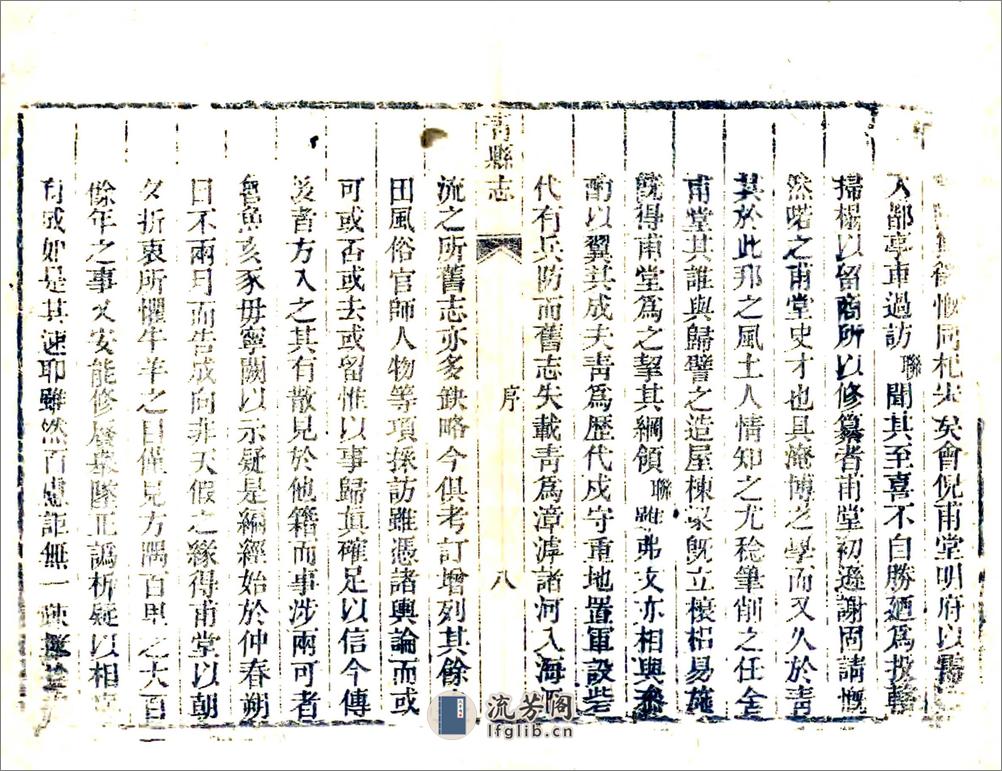 慨同杞宋矣會倪甫堂明府以
入都亭車過訪聯聞其至喜不自勝廼為投轄
掃榻以留商所以修纂者甫堂初遜謝固請慨
然喏之甫堂史才也具淹博之學而又久於青
其於此邦之風土人情知之尤稔筆削之任舍
甫堂其誰與歸譬之造屋棟梁既立榱桷易施
既得甫堂為之挈其綱領聯雖弗文亦相與
酌以翼其成夫青為歷代戍守重地置軍設
代有兵防而舊志失載青為漳滹諸河入海
青縣志
序
八
流之所舊志亦多缺略今俱考訂增列其餘
田風俗官師人物等項採訪雖憑諸輿論而或
可或否或去或留惟以事歸真確足以信今傳
後者方入之其有散見於他籍而事涉兩可者
魯魚亥豕毋寧闕以示疑是編經始於仲春朔
日不兩月而告成向非天假之緣得甫堂以朝
夕折衷所懼牛羊之目僅見方隅百里之大百
餘年之事又安能修廢舉墜正譌析疑以相
有成如是其速耶雖然百慮詎無一疎
流芳閣
lfglib.cn